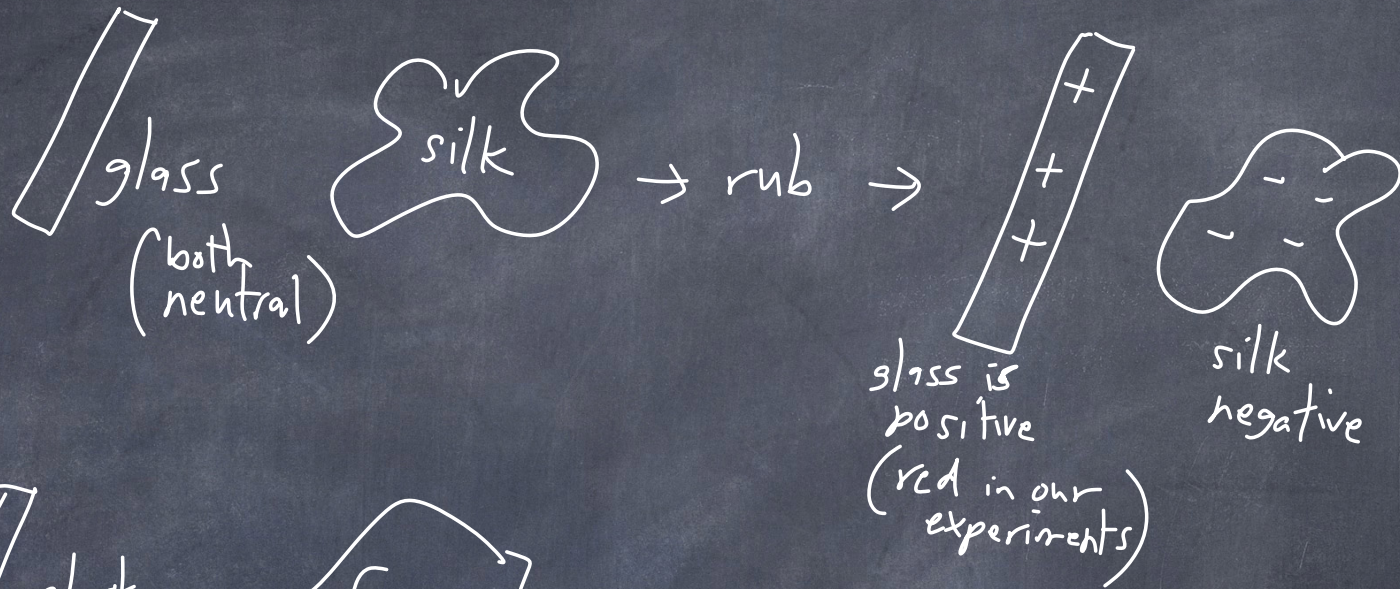 glass
silk
→ rub →
(both
neutral)
+
+
+
- -
- -
glass is
positive
(red in our
experiments)
silk
negative